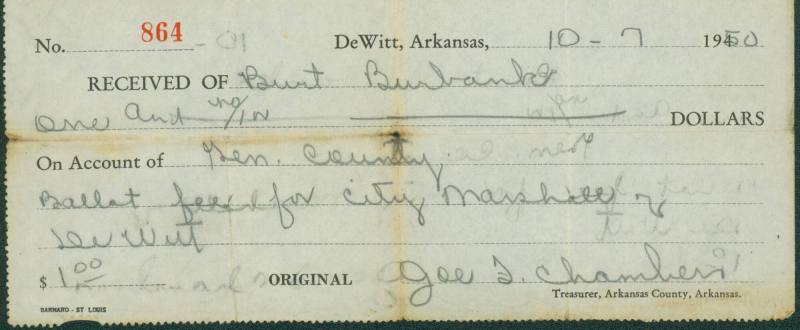 No. 864 -01 DeWitt, Arkansas, 10-7 1950
RECEIVED OF Burt Burbank
One And no/100 DOLLARS
On Account of Gen. County
Ballot fee for City Marshall of
De Witt
$ 1.00 ORIGINAL Joe S. Chambers
Treasurer, Arkansas County, Arkansas.
BARNARD - ST LOUIS